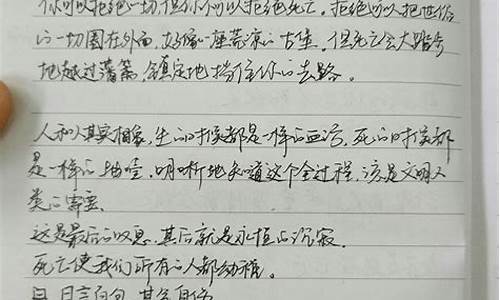 你可以拒绝一切,但你不可以拒绝死亡。拒绝可以把世俗
的一切围在外面,好像一座荒凉的古堡,但死亡会大踏步
地越过藩篱,镇定地挡住你的去路。
人和人其实相象,生的时候都是一样的血污,死的时候都
是一样的抽噎,明晰地知道这个全过程,该是文明人
类的需要。
这是最后的叹息,其后就是永恒的沉寂。
死亡使我们所有的人都幼稚。